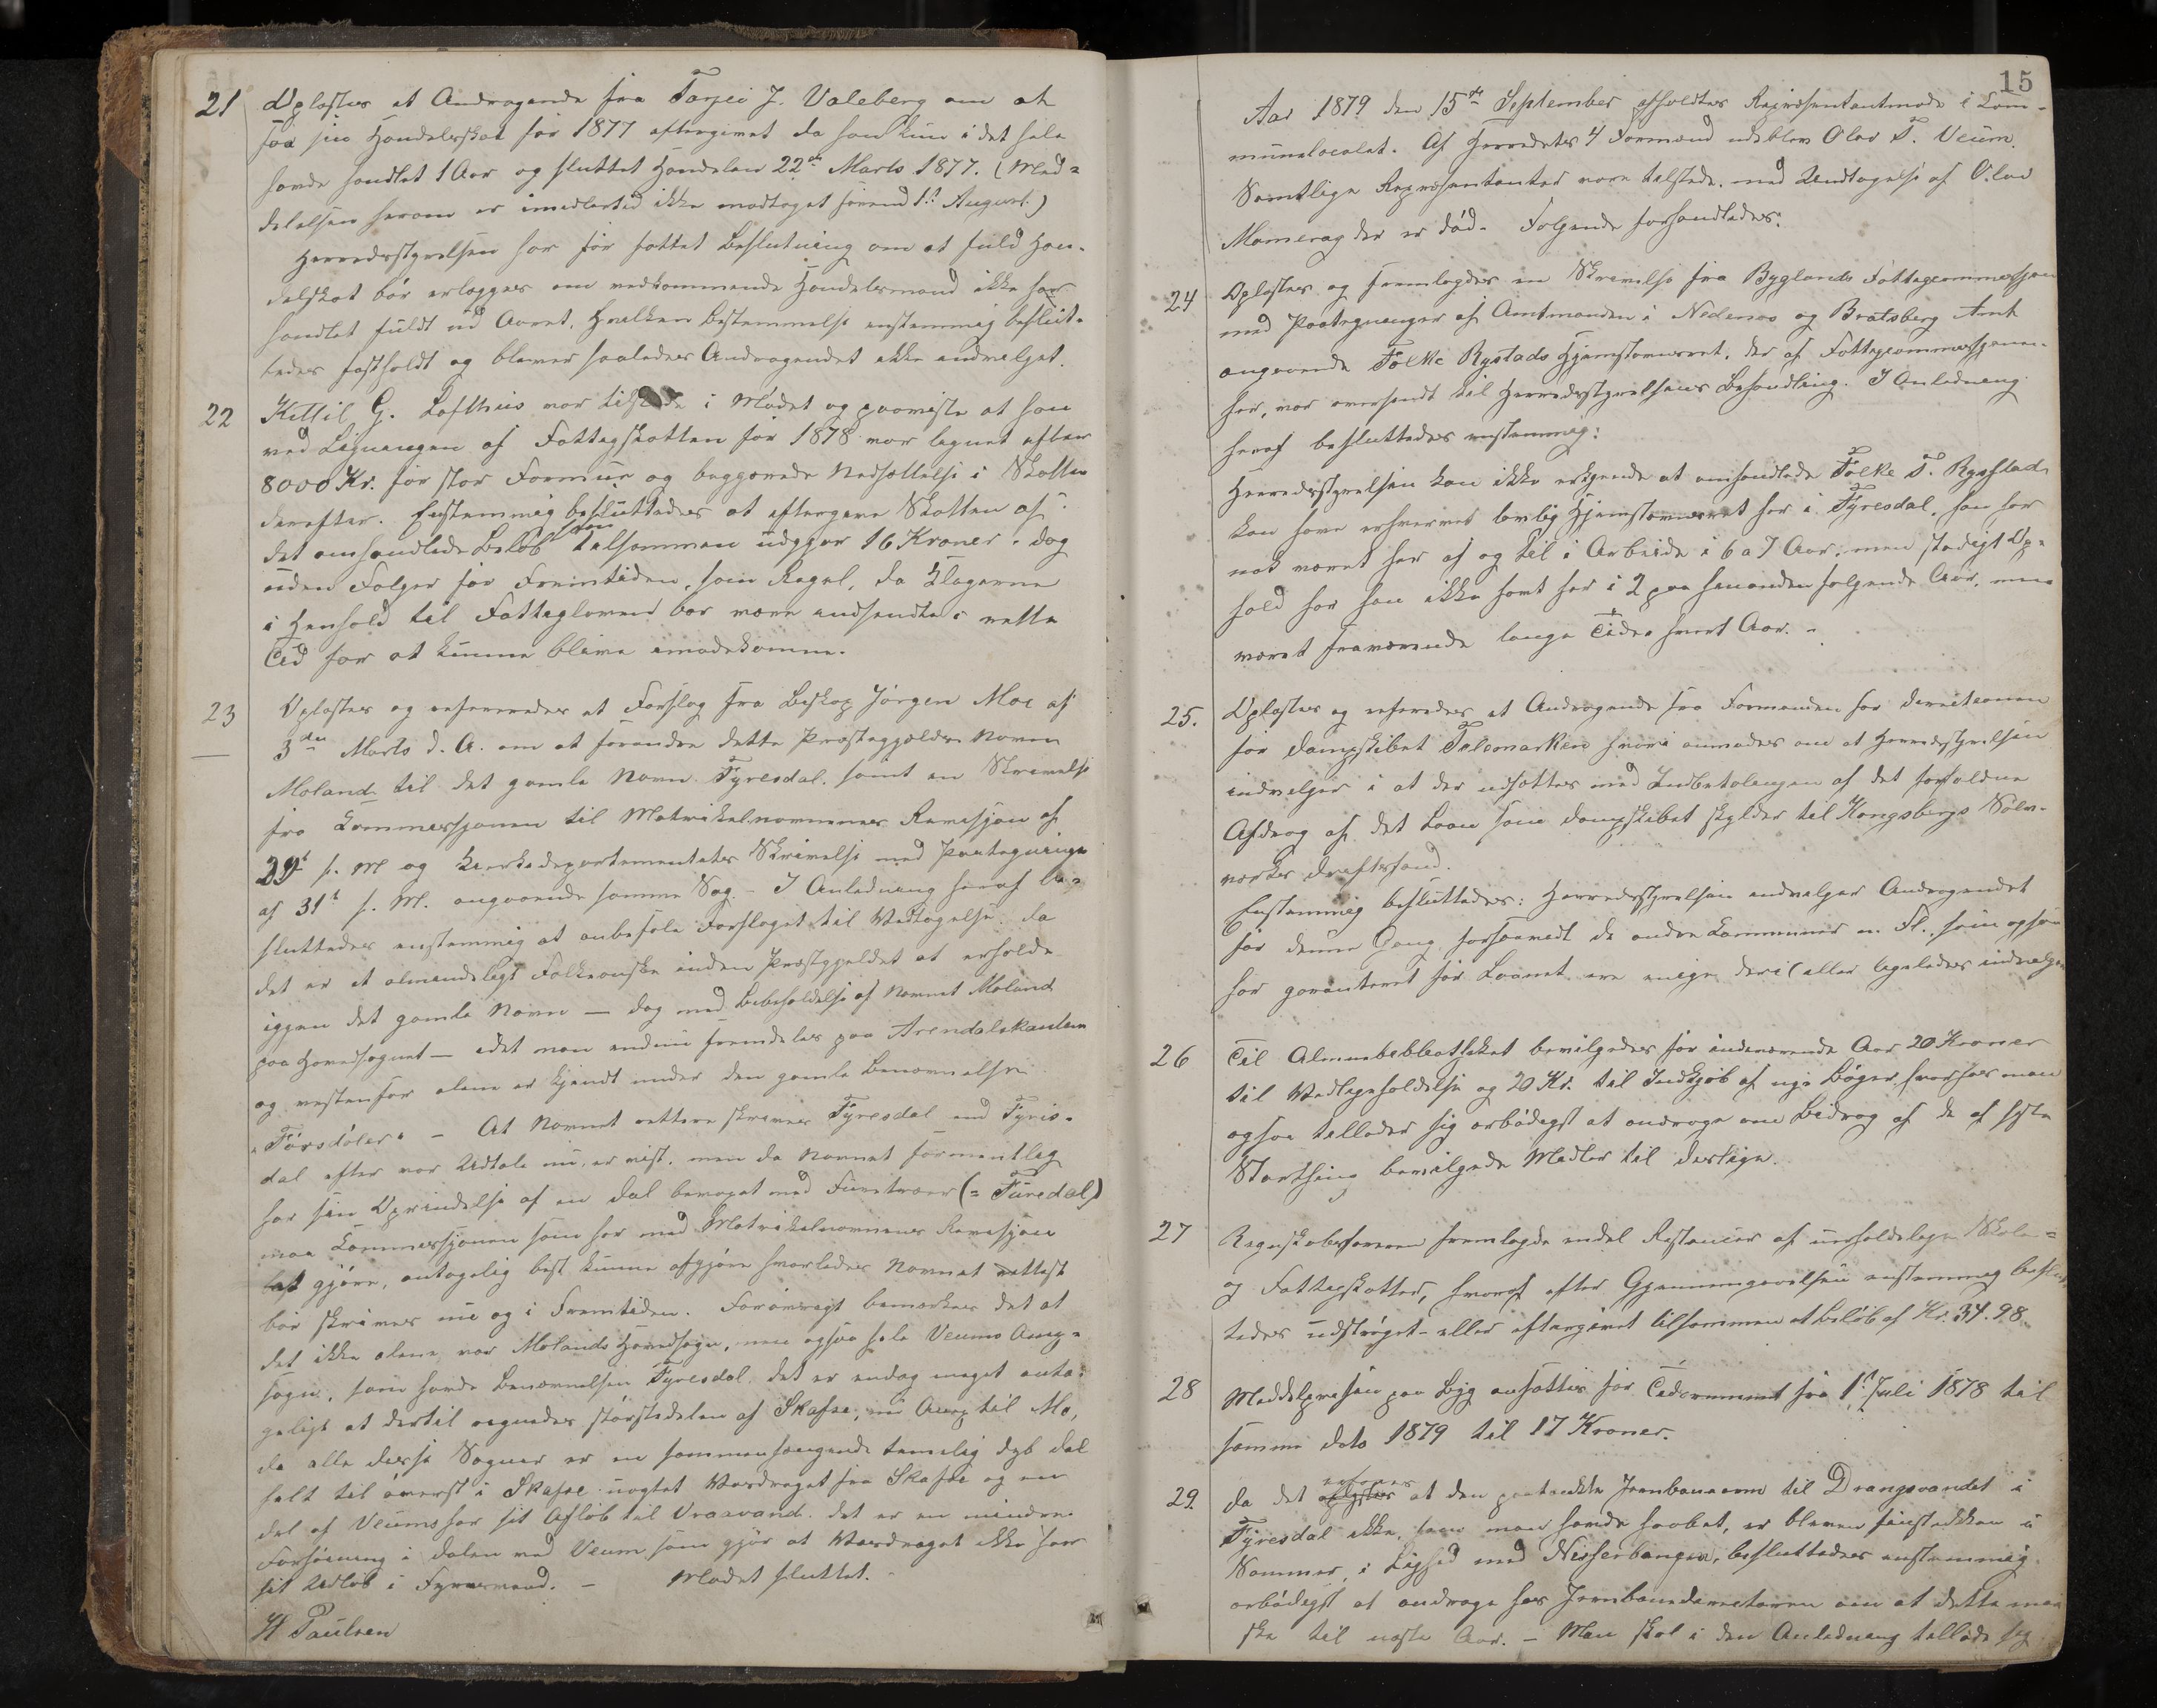 21 Oplæstes et Andragende fra Torjei J. Valeberg om at
faa sin Handelsskat for 1877 eftergivet da han kun i det hele
havde handlet 1 Aar og sluttet Handelen 22de Marts 1877. (Med-
delelsen herom er imidlertid ikke modtaget førend 1st August.)
Herredsstyrelsen har før fattet Beslutning om at fuld Han-
delskat bør erlægges om vedkommende Handelsmand ikke har
handlet fuldt ud Aaret, hvilken Bestemmelse enstemmig beslut-
tedes fastholdt og bliver saaledes Andragendet ikke indvilget.
22 Kittil G. Lofthus var tilstede i Mødet og paaviste at han
ved Ligningen af Fattigskatten for 1878 var lignet efter
8000 Kr. for stor Formue og begjærede Nedsættelse i Skatten
derefter. Enstemmig besluttedes at eftergive Skatten af
det omhandlede Beløb som tilsammen udgjør 16 Kroner - dog
uden Følger for Fremtiden, som Regel, da Klagerne
i Henhold til Fattigloven bør være indsendte i rette
Tid for at kunne blive imødekomne.
23 Oplæstes og refereredes et Forslag fra Biskop Jørgen Moe af
3die Marts d. A. om at forandre dette Præstegjælds Navn
Moland til det gamle Navn Fyresdal, samt en Skrivelse
fra Kommissjonen til Matrikelnavnenes Revisjon af
29t s. M og Kirkedepartementets Skrivelse med Paategning
af 31t s. M. angaaende samme Sag. - I Anledning heraf be-
sluttedes enstemmig at anbefale Forslaget til Vedtagelse, da
det er et almindeligt Folkeønske inden Præstegjeldet at erholde
iggen det gamle Navn — dog med Bibeholdelse af Navnet Moland
paa Hovedsognet — idet man endnu fremdeles paa Arendalskanten
og vestenfor alene er kjendt under den gamle Benævnelse
"Førsdøler" - At Navnet rettere skrives Fyresdal end Fyris-
dal efter vor Udtale nu, er vist, men da Navnet formentlig
har sin Oprindelse af en Dal bevoxet med Furetræer (= Furedal)
maa Kommissjonen som har med Matrikelnavnenes Revisjon
at gjøre, antagelig best kunne afgjøre hvorledes Navnet rettest
bør skrives nu og i Fremtiden. Forøvrigt bemærkes det at
det ikke alene var Molands Hovedsogn, men ogsaa hele Veums Anex-
sogn, som havde Benævnelsen Fyresdal, det er endog meget anta-
geligt at dertil regnedes størstedelen af Skafse, nu Anex til Mo,
da alle disse Sogner er en sammenhængende temelig dyb Dal
helt til øverst i Skafse uagtet Vasdraget fra Skafse og en
del af Veums har sit Afløb til Vraavand. Det er en mindre
Forhøining i Dalen ved Veum som gjør at Vasdraget ikke har
sit Udløb i Fyrisvand. - Mødet sluttet. -
H Paulsen
15
Aar 1879 den 15de September afholdtes Repræsentantmøde i Com-
munelocalet. Af Herredets 4 Formænd udeblev Olav T. Veum.
Samtlige Repræsentanter vare tilstede med Undtagelse af Olav
Momerag der er død. Følgende forhandledes:
24 Oplæstes og fremlagdes en Skrivelse fra Byglands Fattigcommissjon
med Paategninger af Amtmanden i Nedenæs og Bratsberg Amt
angaaende Folke Rystads Hjemstavnsret, der af Fattigcommissjonen
her, var oversendt til Herredsstyrelsens Behandling. I Anledning
heraf besluttedes enstemmig:
Herredsstyrelsen kan ikke erkjende at omhandlede Folke T. Rysstad
kan have erhvervet lovlig Hjemstavnsret her i Fyresdal, han har
nok været her af og til i Arbeide i 6 a 7 Aar, men stadigt Op-
hold har han ikke havt her i 2 paa hinanden følgende Aar, men
været fraværende lange Tider hvert Aar. -
25. Oplæstes og refereredes et Andragende fra Formanden for Direktionen
for Dampskibet Telemarken hvori anmodes om at Herredsstyrelsen
indvilger i at der udsættes med Indbetalingen af det forfaldne
Afdrag af det Laan som Dampskibet skylder til Kongsbergs Sølv-
værks Driftsfond.
Enstemmig besluttedes: Herredsstyrelsen indvilger Andragendet
for denne Gang forsaavidt de andre Kommuner m. Fl., som ogsaa
har garanteret for Laanet ere enige deri (eller ligeledes indvilge
26 Til Almuebibliotheket bevilgedes for indeværende Aar 20 Kroner
til Vedligeholdelse og 20 Kr. til Indkjøb af nye Bøger, hvorhos man
ogsaa tillader sig ærbødigst at andrage om Bidrag af de af sidste
Storthing bevilgede Midler til deslige.
27 Regnskabsføreren fremlagde endel Restancer af uerholdelige Skole-
og Fattigskatter, hvoraf efter Gjennemgaaelsen enstemmig beslut
tedes udstrøget - eller eftergivet tilsammen et Beløb af Kr. 34.98.
28 Middelprisen paa Byg ansættes for Tidsrummet fra 1st Juli 1878 til
samme Dato 1879 til 17 Kroner.
29. Da det erfares at den paatænkte Jernbanearm til Drangsvandet i
Fyresdal ikke, som man havde haabet, er bleven paastukken i
Sommer, i Lighed med Nisserbanen, besluttedes enstemmig
ærbødigst at andrage hos Jernbanedirectøren om at dette maa
ske til næste Aar. - Man skal i den Anledning tillade sig